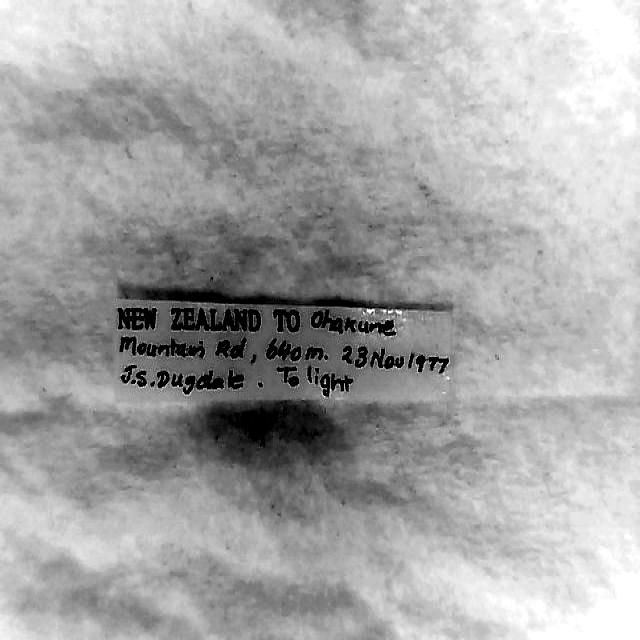 NEW ZEALAND TO Ohakune
Mountain Rd, 640m. 23 Nov 1977
J.S. Dugdale. To light